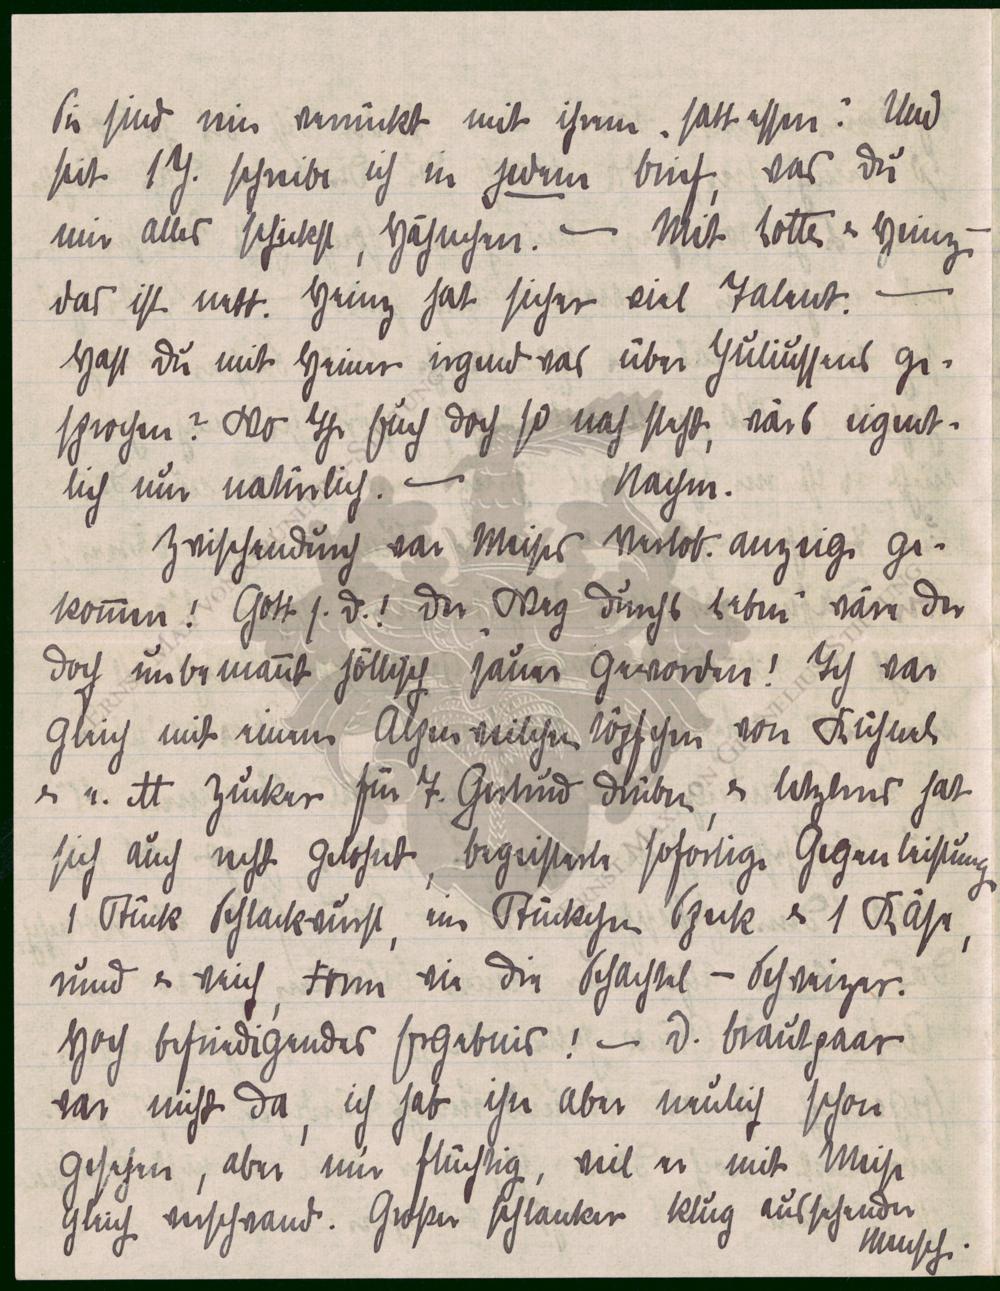 Sie sind nun verrückt mit ihrem „satt essen“! Und
seit 1 J. schreibe ich in jedem Brief, was Du
mir alles schickst, Hähnchen. — Mit Lotte & Heinz –
das ist nett. Heinz hat sicher viel Talent. —
Hast Du mit Heiner irgend was über Juliussens ge-
sprochen? Wo Ihr Euch doch so nah steht, wärs eigent-
lich nur natürlich. — Nachm.
Zwischendurch war Meises Verlob. anzeige ge-
kom̄en! Gott s. D.! Der „Weg durchs Leben“ wäre der
doch unbeman̄t höllisch sauer geworden! Ich war
gleich mit einem Alpenveilchentöpfchen von Kühnels
& e. ℔ Zucker für F. Gertrud drüben, & letzteres hat
sich auch recht gelohnt, begeisterte sofortige Gegenleistung,
1 Stück Schlackwurst, ein Stückchen Speck & 1 Käse,
rund & weich, Form wie die Schachtel – Schweizer.
Hoch befriedigendes Ergebnis! — D. Brautpaar
war nicht da, ich hab ihn aber neulich schon
gesehen, aber nur flüchtig, weil er mit Meise
gleich verschwand. Großer schlanker klug aussehender
Mensch.